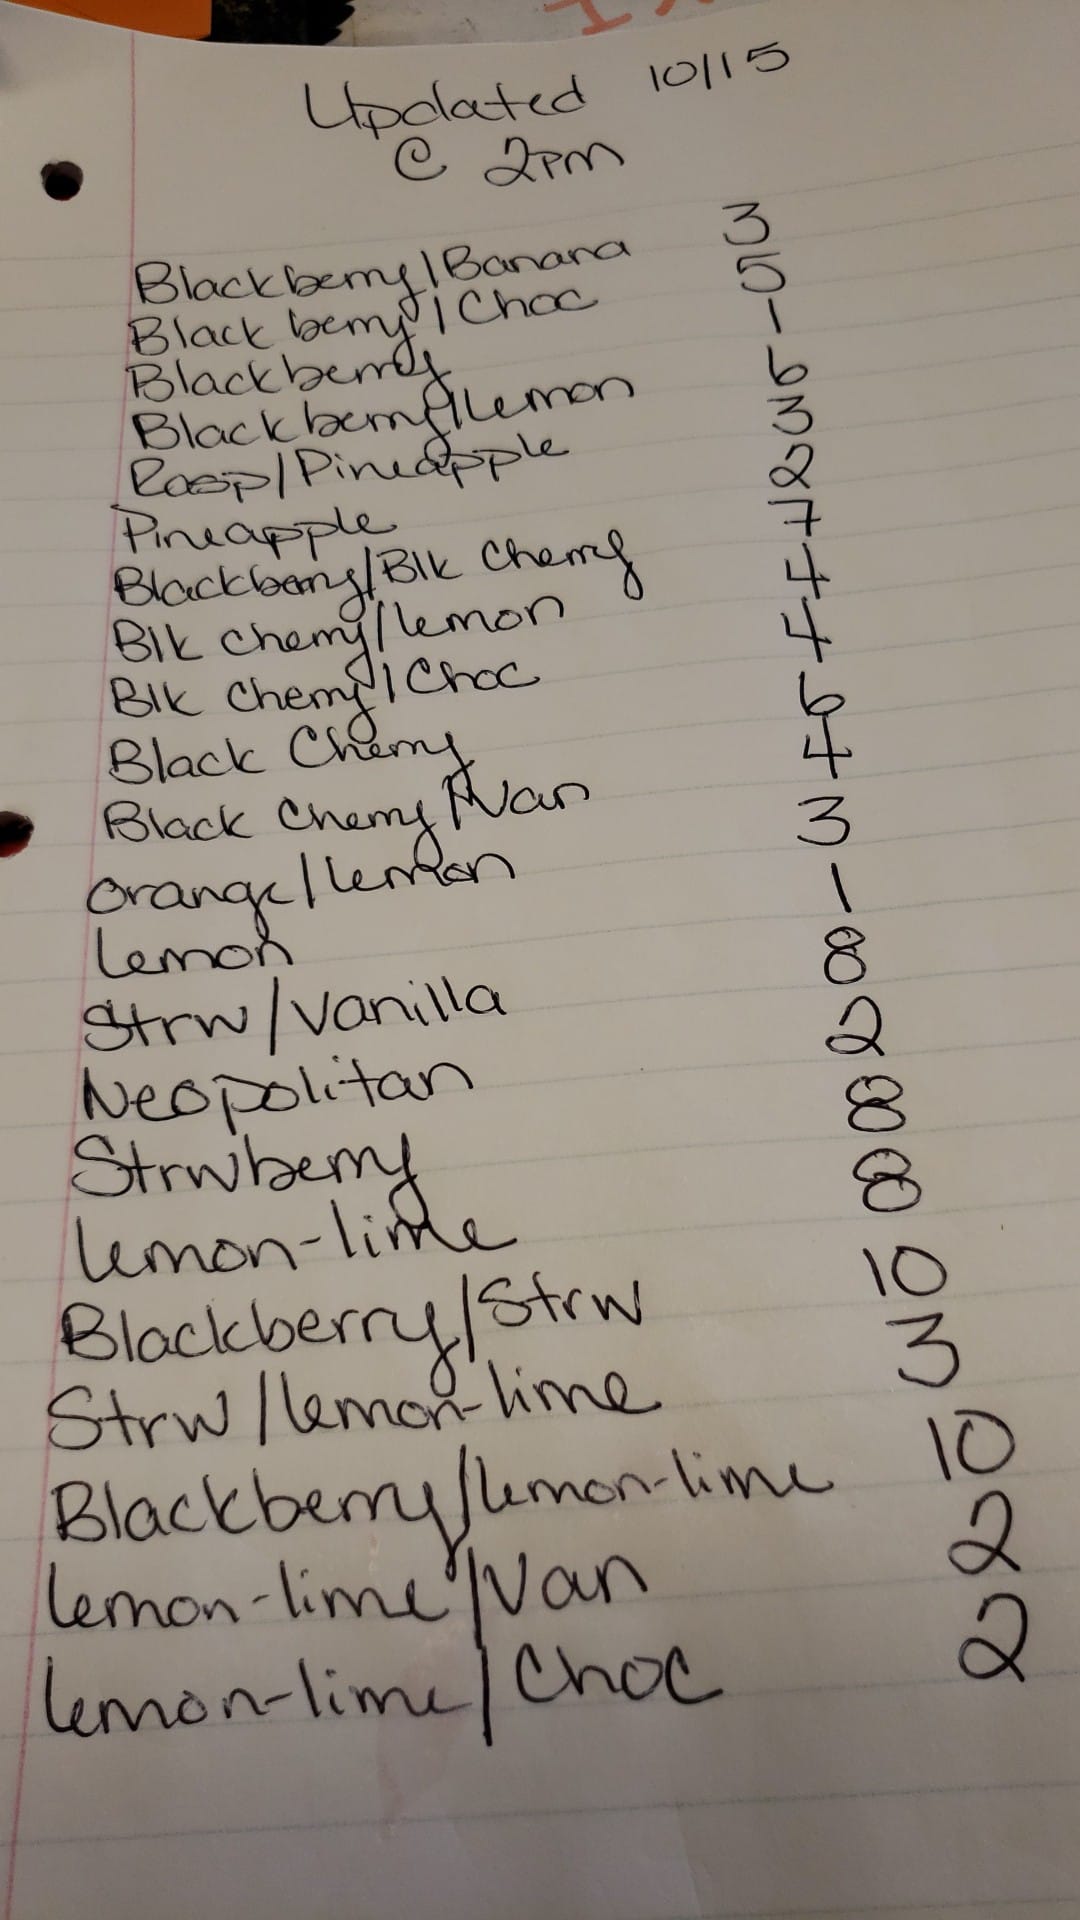 Updated 10/15
@ 2PM
Blackberry/Banana 3
Blackberry/Choc 5
Blackberry 1
Blackberry/lemon 6
Rasp/Pineapple 3
Pineapple 2
Blackberry/Blk Cherry 7
Blk Cherry/lemon 4
Blk Cherry/Choc 4
Black Cherry 6
Black Cherry/Van 4
Orange/lemon 3
Lemon 1
Strw/Vanilla 8
Neopolitan 2
Strwberry 8
lemon-lime 8
Blackberry/Strw 10
Strw/lemon-lime 3
Blackberry/lemon-lime 10
lemon-lime/Van 2
lemon-lime/Choc 2